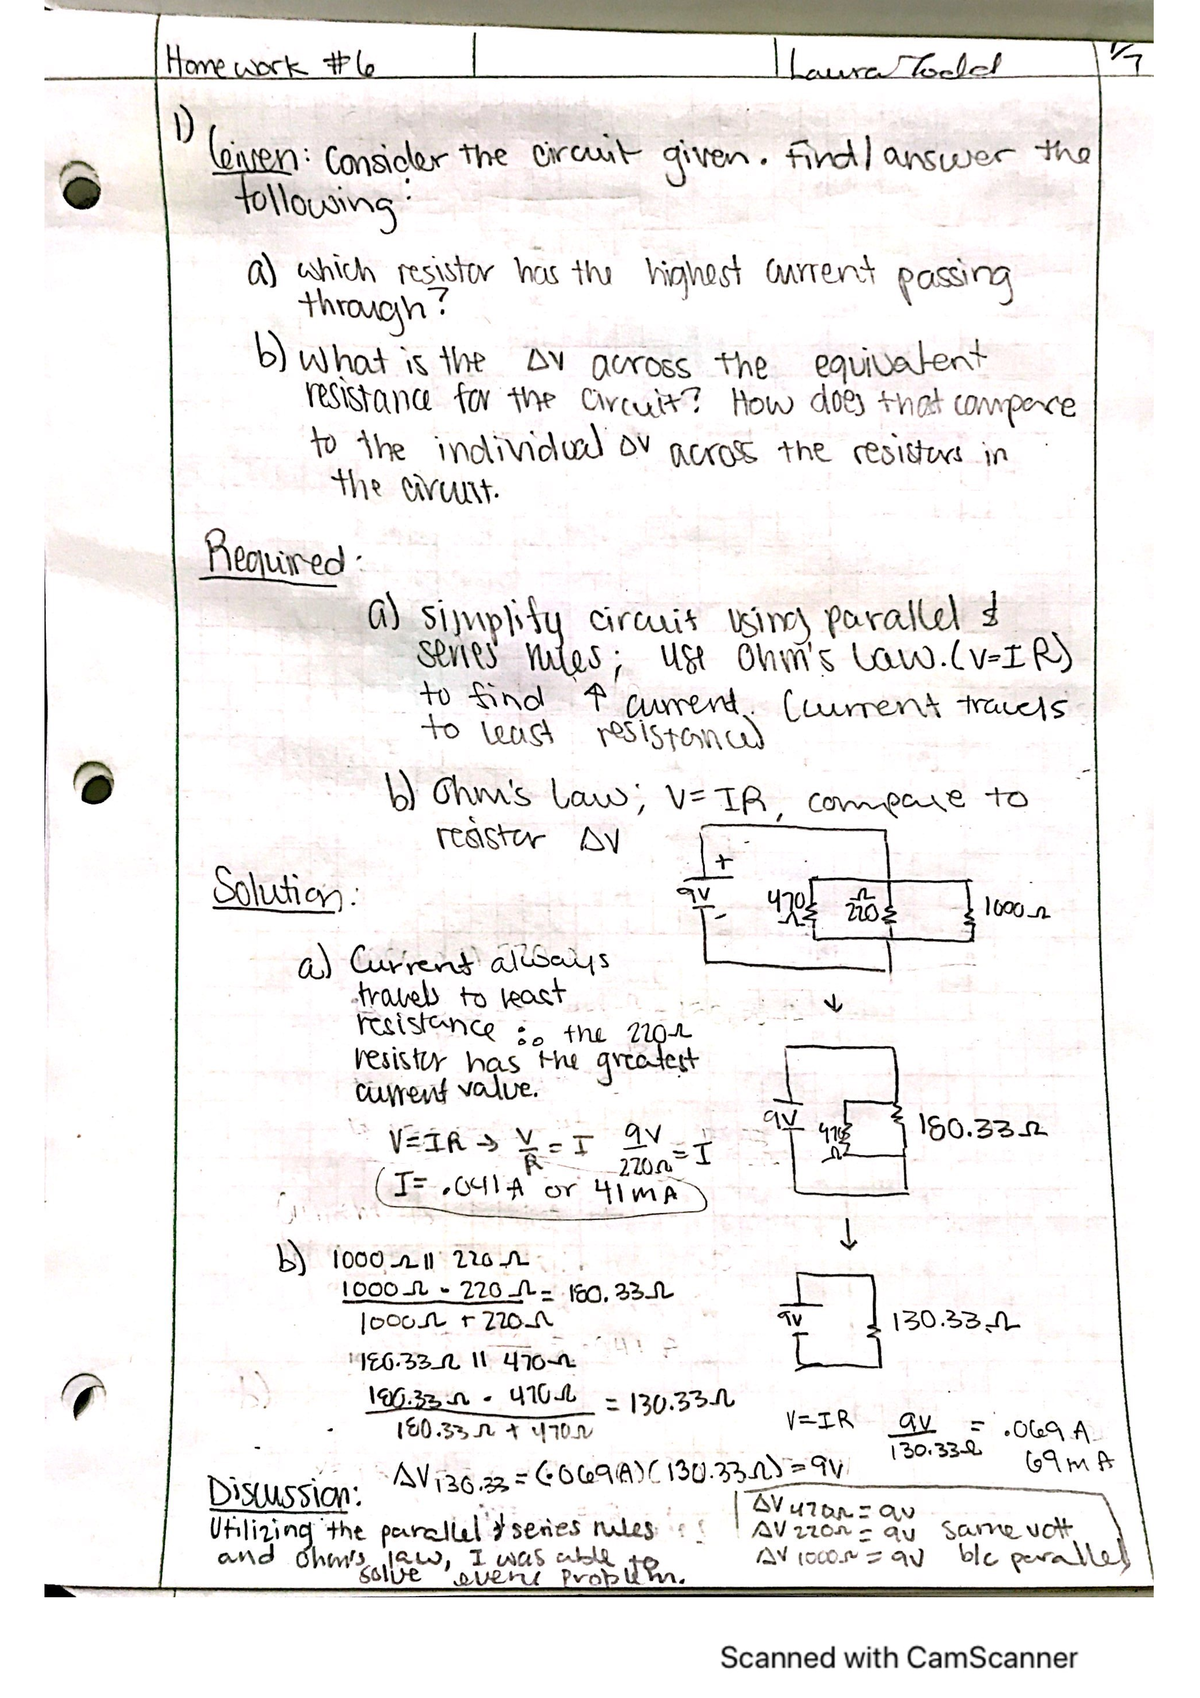 Homework #6
Laura Todd
1/7
1)
Given: Consider the circuit given. Find/answer the
following:
a) which resistor has the highest current passing
through?
b) what is the ΔV across the equivalent
resistance for the circuit? How does that compare
to the individual ΔV across the resistors in
the circuit.
Required:
a) simplify circuit using parallel &
series rules; use Ohm's Law. (V=IR)
to find ↑ current. (current travels
to least resistance)
b) Ohm's Law; V=IR, compare to
resistor ΔV
Solution:
+
9V
-
470 Ω
Ω 220
1000 Ω
a) Current always
travels to least
resistance ∴ the 220Ω
resistor has the greatest
current value.
↓
9V
470 Ω
180.33 Ω
V=IR → V/R = I 9V/220Ω = I
I = .041A or 41mA
↓
9V
130.33 Ω
b) 1000 Ω || 220 Ω
1000 Ω · 220 Ω = 180.33 Ω
1000Ω + 220Ω
180.33 Ω || 470 Ω
180.33 Ω · 470 Ω = 130.33 Ω
180.33 Ω + 470 Ω
V=IR 9V/130.33Ω = .069 A
69mA
ΔV130.33 = (.069A)(130.33Ω) = 9V
Discussion:
Utilizing the parallel & series rules
and Ohm's law, I was able to
solve every problem.
ΔV 470Ω = 9V
ΔV 220Ω = 9V same volt
ΔV 1000Ω = 9V b/c parallel
Scanned with CamScanner